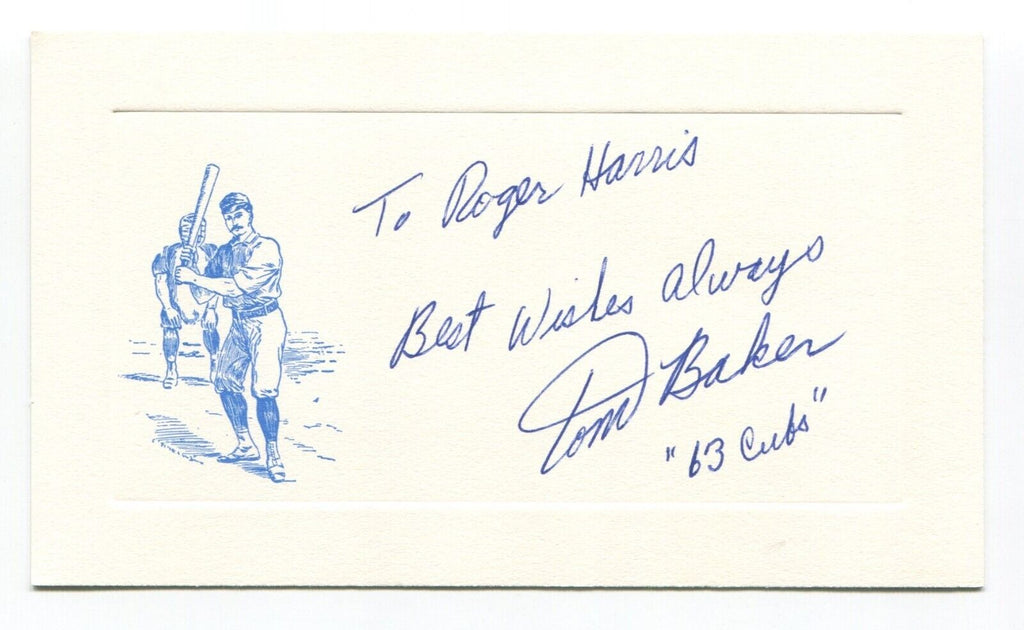 To Roger Harris
Best Wishes always
Tom Baker
"63 Cubs"